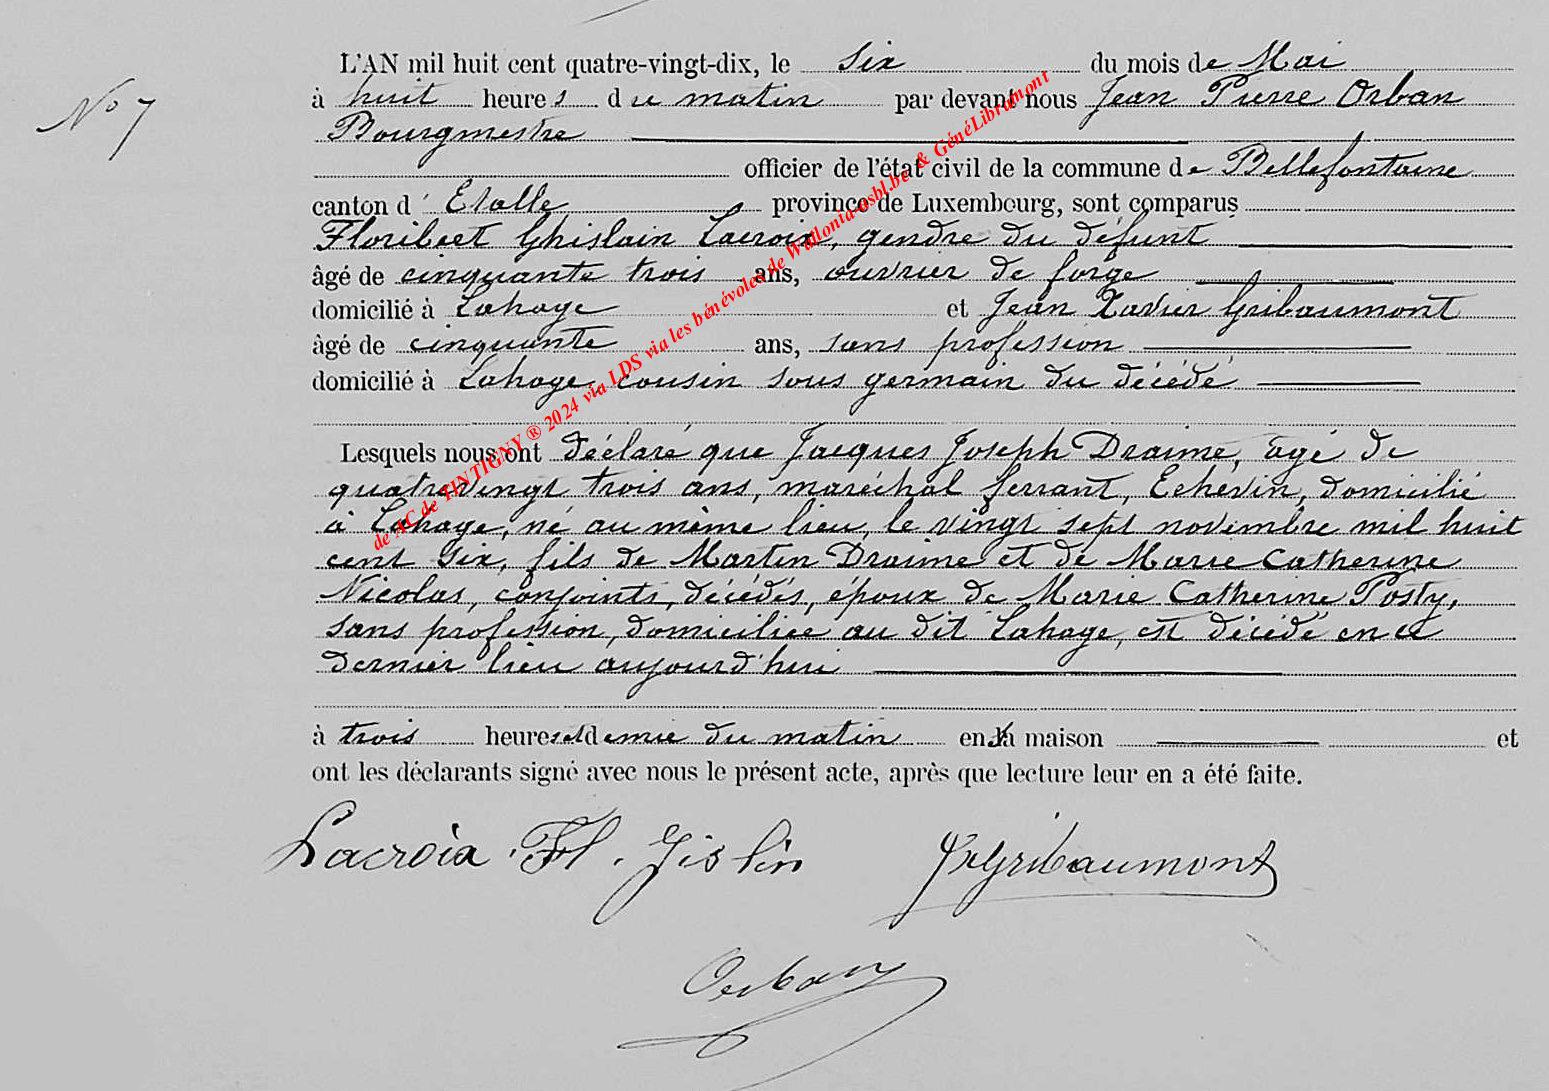 L'AN mil huit cent quatre-vingt-dix, le six du mois de Mai
N° 7
à huit heures du matin par devant nous Jean Pierre Orban
Bourgmestre
officier de l'état civil de la commune de Bellefontaine
canton d' Etalle province de Luxembourg, sont comparus
Floribert Ghislain Lacroix, gendre du défunt
âgé de cinquante trois ans, ouvrier de forge
domicilié à Lahage et Jean Xavier Gribaumont
âgé de cinquante ans, sans profession
domicilié à Lahage, cousin sous germain du décédé
Lesquels nous ont déclaré que Jacques Joseph Draime, âgé de
quatrevingt trois ans, maréchal ferrant, Echevin, domicilié
à Lahage, né au même lieu, le vingt sept novembre mil huit
cent six, fils de Martin Draime et de Marie Catherine
Nicolas, conjoints, décédés, époux de Marie Catherine Posty,
sans profession, domiciliée au dit Lahage, est décédé en ce
dernier lieu aujourd'hui
à trois heures et demie du matin en sa maison et
ont les déclarants signé avec nous le présent acte, après que lecture leur en a été faite.
Lacroix . Fl . Gislin JXGribaumont
Orban
de AC de TINTIGNY ® 2024 via LDS via les bénévoles de Wallonia-asbl.be & GénéLibramont